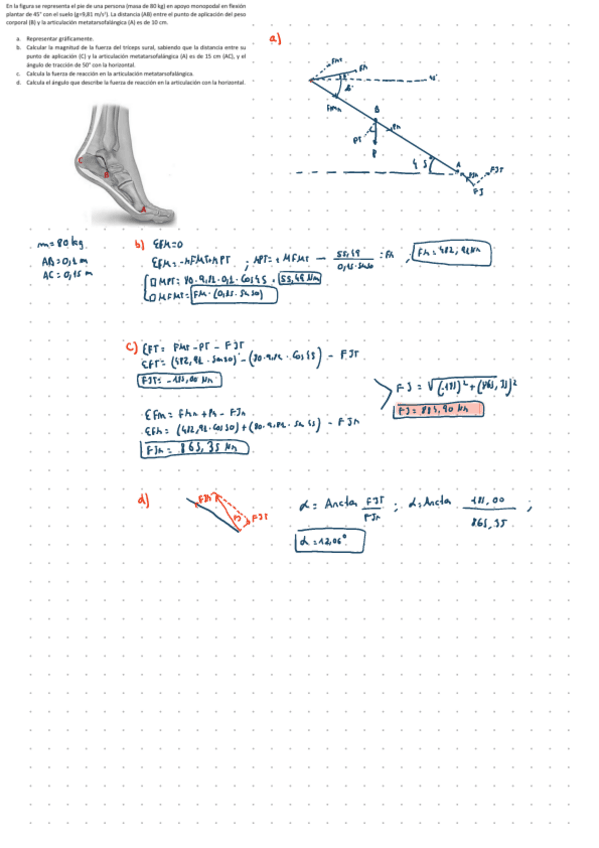 En la figura se representa el pie de una persona (masa de 80 kg) en apoyo monopodal en flexión
plantar de 45° con el suelo (g=9,81 m/s²). La distancia (AB) entre el punto de aplicación del peso
corporal (B) y la articulación metatarsofalángica (A) es de 10 cm.
a. Representar gráficamente.
b. Calcular la magnitud de la fuerza del tríceps sural, sabiendo que la distancia entre su
punto de aplicación (C) y la articulación metatarsofalángica (A) es de 15 cm (AC), y el
ángulo de tracción de 50° con la horizontal.
c. Calcula la fuerza de reacción en la articulación metatarsofalángica.
d. Calcula el ángulo que describe la fuerza de reacción en la articulación con la horizontal.
a)
B
A
45
PT
P
FJT
FJ
C
B
A
m = 80 kg
AB = 0,1 m
AC = 0,15 m
b) ΣFM = 0
55,49
= FM
FM = 482,92 N
MPT: 80 · 9,81 · 0,1 · Cos 45 = 55,49 Nm
MFMT = FM · (0,15 · Sin 50)
c) ΣFT = FMT - PT - FJT
ΣFT = (482,92 · Sin 50) - (80 · 9,81 · Cos 45) - FJT
FJT = -181,00 N
FJ = 883,90 N
ΣFn = FMn + Pn - FJn
ΣFn = (482,92 · Cos 50) + (80 · 9,81 · Sin 45) - FJn
FJn = 865,35 N
d)
FJn
FJT
α = Arctan FJT / FJn ; α = Arctan 181,00 / 865,35 ;
α = 12,06°